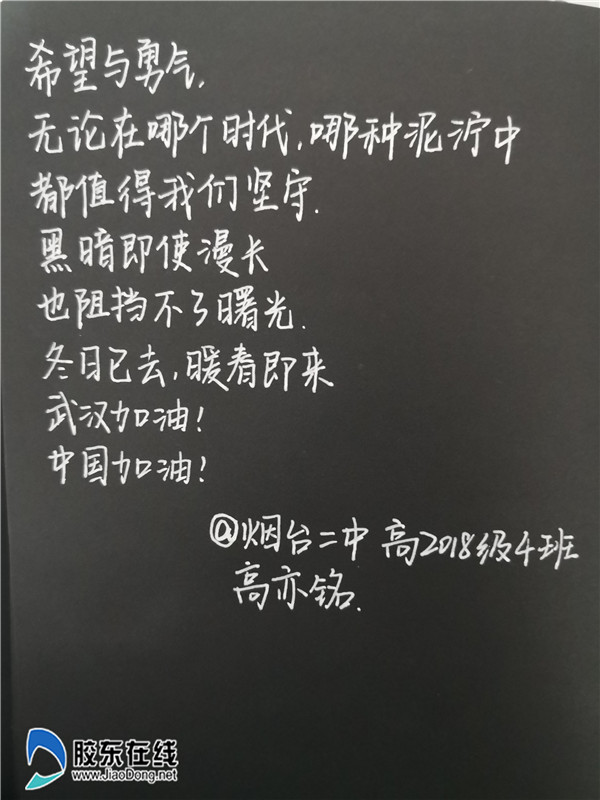 希望与勇气,
无论在哪个时代,哪种泥泞中
都值得我们坚守.
黑暗即使漫长
也阻挡不了曙光.
冬日已去,暖春即来
武汉加油!
中国加油!
@烟台二中 高2018级4班
高亦铭.
胶东在线
www.JiaoDong.net